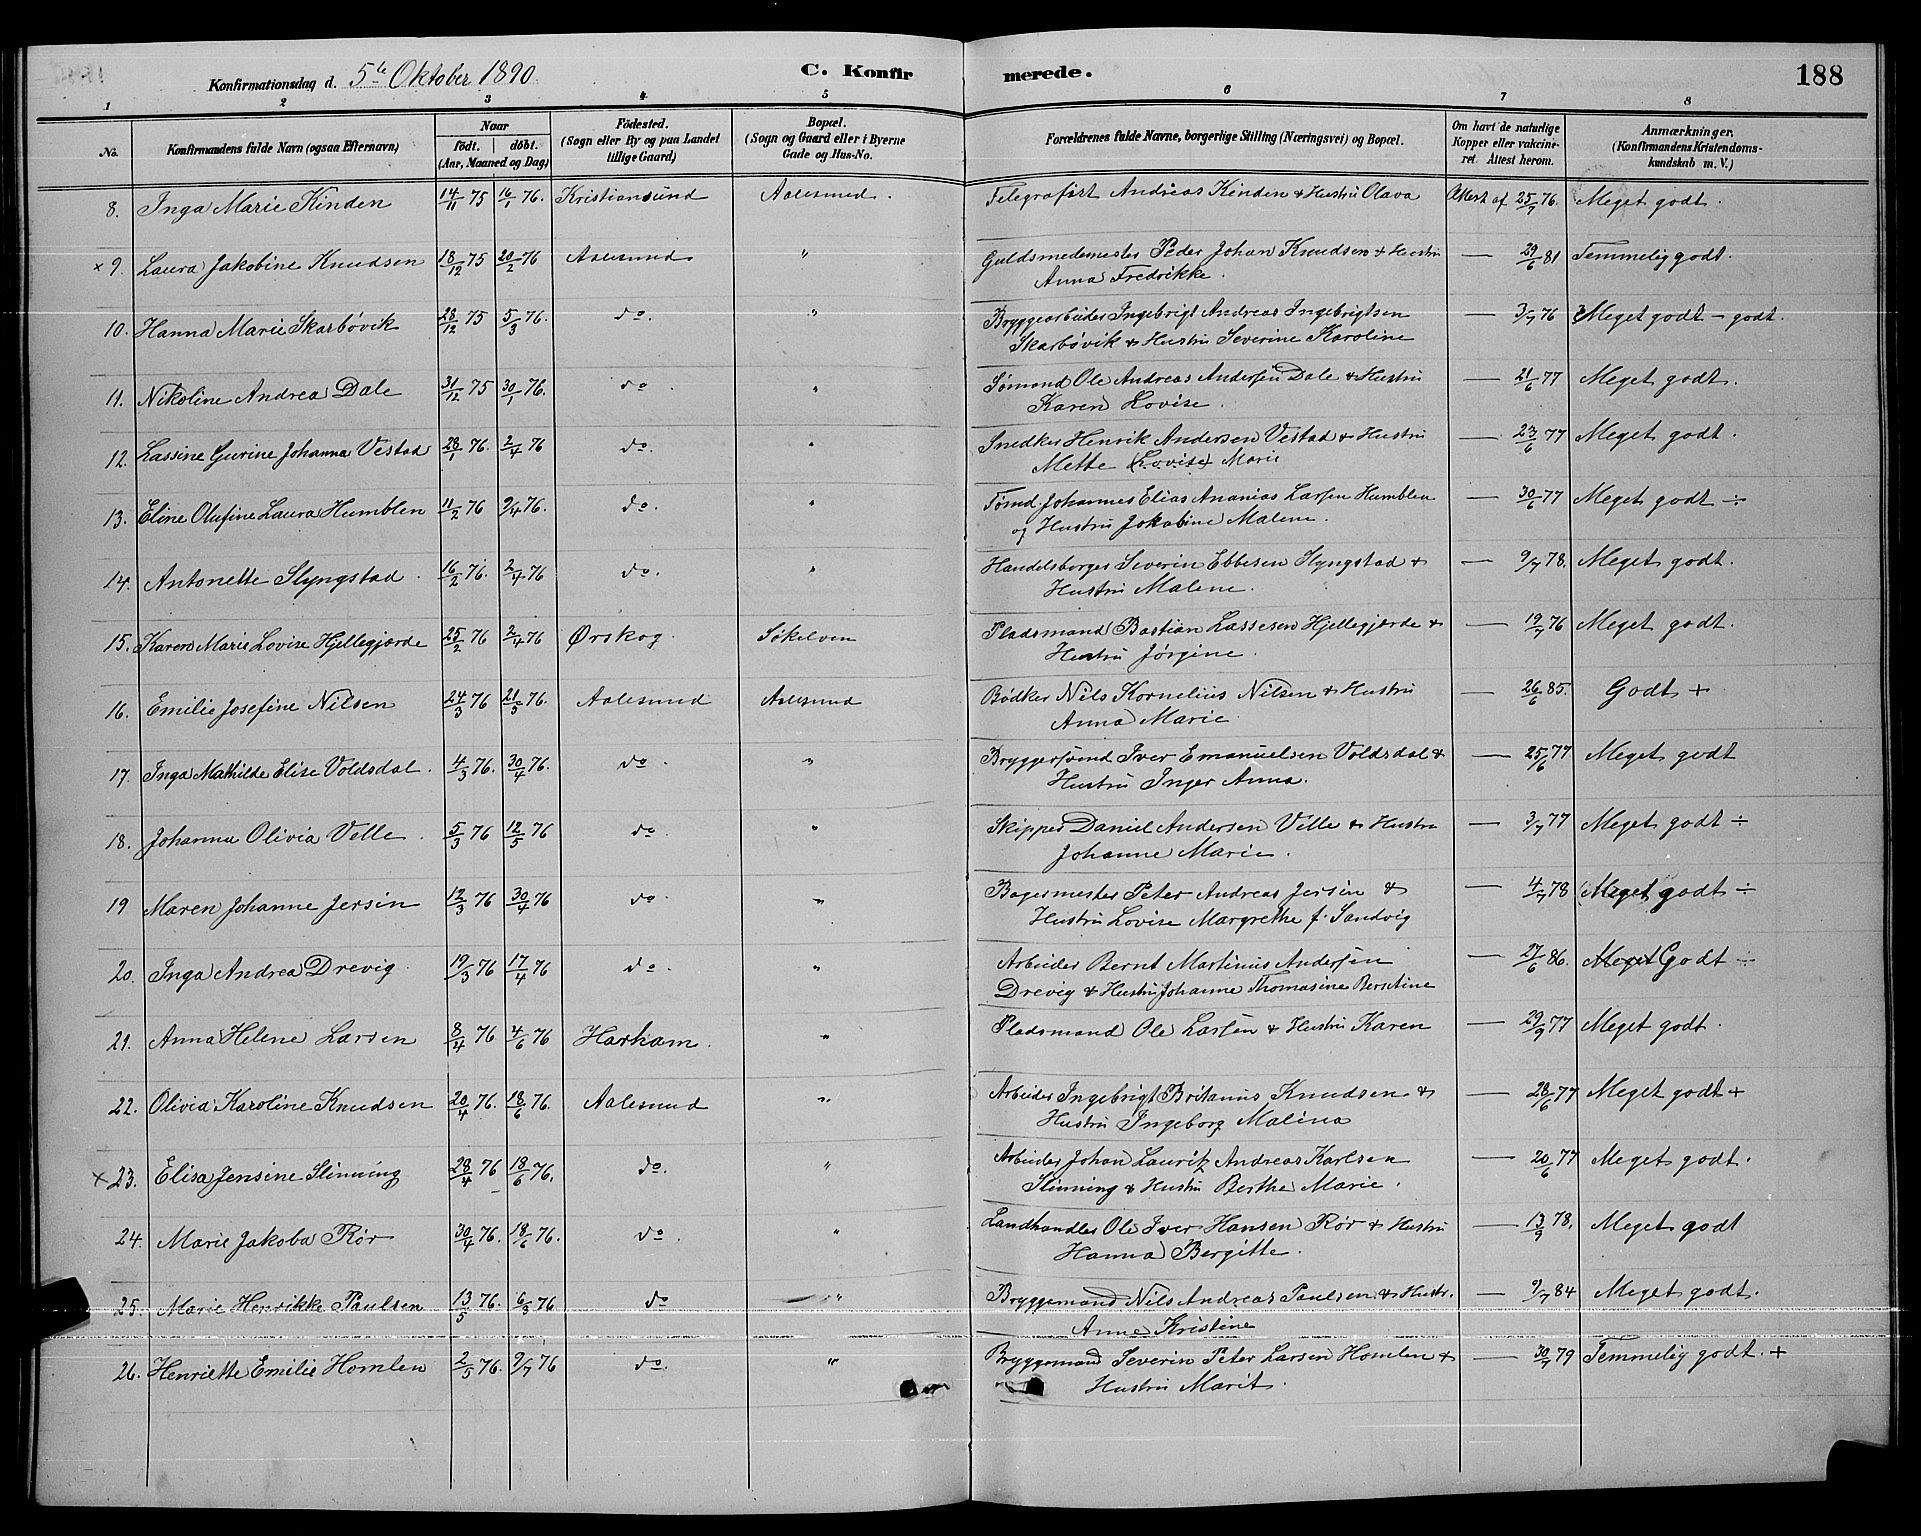 Konfirmationsdag d. 5te Oktober 1890. C. Konfirmerede. 188
1 2 3 4 5 6 7 8
No. Konfirmandens fulde Navn (ogsaa Efternavn) Naar födt. döbt. (Aar, Maaned og Dag) Födested. (Sogn eller By og paa Landet tillige Gaard) Bopæl. (Sogn og Gaard eller i Byerne Gade og Hus-No. Forældrenes fulde Navne, borgerlige Stilling (Næringsvei) og Bopæl. Om havt de naturlige Kopper eller vakcineret. Attest herom. Anmærkninger. (Konfirmandens Kristendomskundskab m. V.)
8. Inga Marie Kinden 14/11 75 16/1 76. Kristiansund Aalesund. Telegrafist Andreas Kinden & Hustru Olava Attest af 25/7 76. Meget godt.
× 9. Laura Jakobine Knudsen 18/12 75 20/2 76 Aalesund " Guldsmedemester Peder Johan Knudsen & Hustru — 29/6 81 Temmelig godt.
Anna Fredrikke.
10. Hanna Marie Skarbövik 28/12 75 5/3 76. do. " Bryggearbeider Ingebrigt Andreas Ingebrigtsen — 3/7 76 Meget godt - godt.
Skarbövik & Hustru Severine Karoline
11. Nikoline Andrea Dale 31/12 75 30/1 76. do. " Sømand Ole Andreas Andersen Dale & Hustru — 21/6 77 Meget godt.
Karen Lovise.
12. Lassine Gurine Johanna Vestad 28/1 76. 2/4 76 do. " Snedker Henrik Andersen Vestad & Hustru — 23/6 77 Meget godt.
Mette (Lovise) Marie
13. Eline Olufine Laura Humblen 11/2 76 9/4 76. do. " Tømd. Johannes Elias Ananias Larsen Humblen — 30/6 77 Meget godt ÷
og Hustru Jakobine Malene.
14. Antonette Slyngstad. 16/2 76. 2/4 76 do. " Handelsborger Severin Ebbesen Slyngstad & — 9/7 78. Meget godt.
Hustru Malene.
15. Karen Marie Lovise Hjellegjærde 25/2 76 2/4 76 Ørskog. Søkelven Pladsmand Bastian Lassesen Hjellegjærde & — 19/7 76 Meget godt.
Hustru Jørgine.
16. Emilie Josefine Nilsen 24/3 76 21/5 76. Aalesund Aalesund Bødker Nils Kornelius Nilsen & Hustru — 26/6 85. Godt +
Anna Marie.
17. Inga Mathilde Elise Voldsdal. 4/3 76. 30/4 76. do. " Bryggersvend Iver Emanuelsen Voldsdal & — 25/6 77 Meget godt
Hustru Inger Anna.
18. Johanna Olivia Velle. 5/3 76 12/5 76 do. " Skipper Daniel Andersen Velle & Hustru — 3/7 77 Meget godt ÷
Johanne Marie.
19 Maren Johanne Jersin 12/3 76 30/4 76 do. " Bagermester Peter Andreas Jersin & — 4/7 78 Meget godt ÷
Hustru Lovise Margrethe f. Sandvig
20. Inga Andrea Drevig. 19/3 76 17/4 76 do. " Arbeider Bernt Martinus Andersen — 27/6 86. Meget Godt ÷
Drevig & Hustru Johanne Thomasine Berntine
21. Anna Helene Larsen 8/4 76 4/6 76 Harham. " Pladsmand Ole Larsen & Hustru Karen — 29/9 77 Meget godt.
22. Olivia Karoline Knudsen 20/4 76. 18/6 76. Aalesund " Arbeider Ingebrigt Knudsen & — 28/6 77 Meget godt +
Hustru Ingeborg Malina
× 23. Elisa Jensine Slinning 28/4 76 18/6 76. do. " Arbeider Johan Laurik Andreas Karlsen — 20/6 77 Meget godt.
Slinning & Hustru Berthe Marie.
24. Marie Jakoba Rör 30/4 76. 18/6 76. do. " Landhandler Ole Iver Hansen Rör & Hustru — 13/9 78. Meget godt
Hanna Bergitte.
25. Marie Henrikke Paulsen 13/5 76. 6/3 76 do " Bryggemand Nils Andreas Paulsen & Hustr. — 9/7 84 Meget godt.
Anne Kristine
26. Henriette Emilie Homlen 2/5 76. 9/7 76 do. " Bryggemand Severin Peter Larsen Homlen & — 30/7 79 Temmelig godt. +
Hustru Marit.